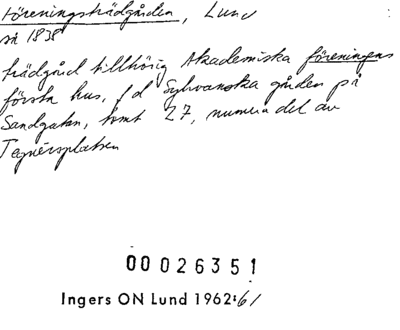 Föreningsträdgården, Lund
sä 1838
trädgård tillhörig Akademiska föreningens
första hus, f d Sylwanska gården på
Sandgatan, tomt 27, numera del av
Tegnérsplatsen
00026351
Ingers ON Lund 1962:61